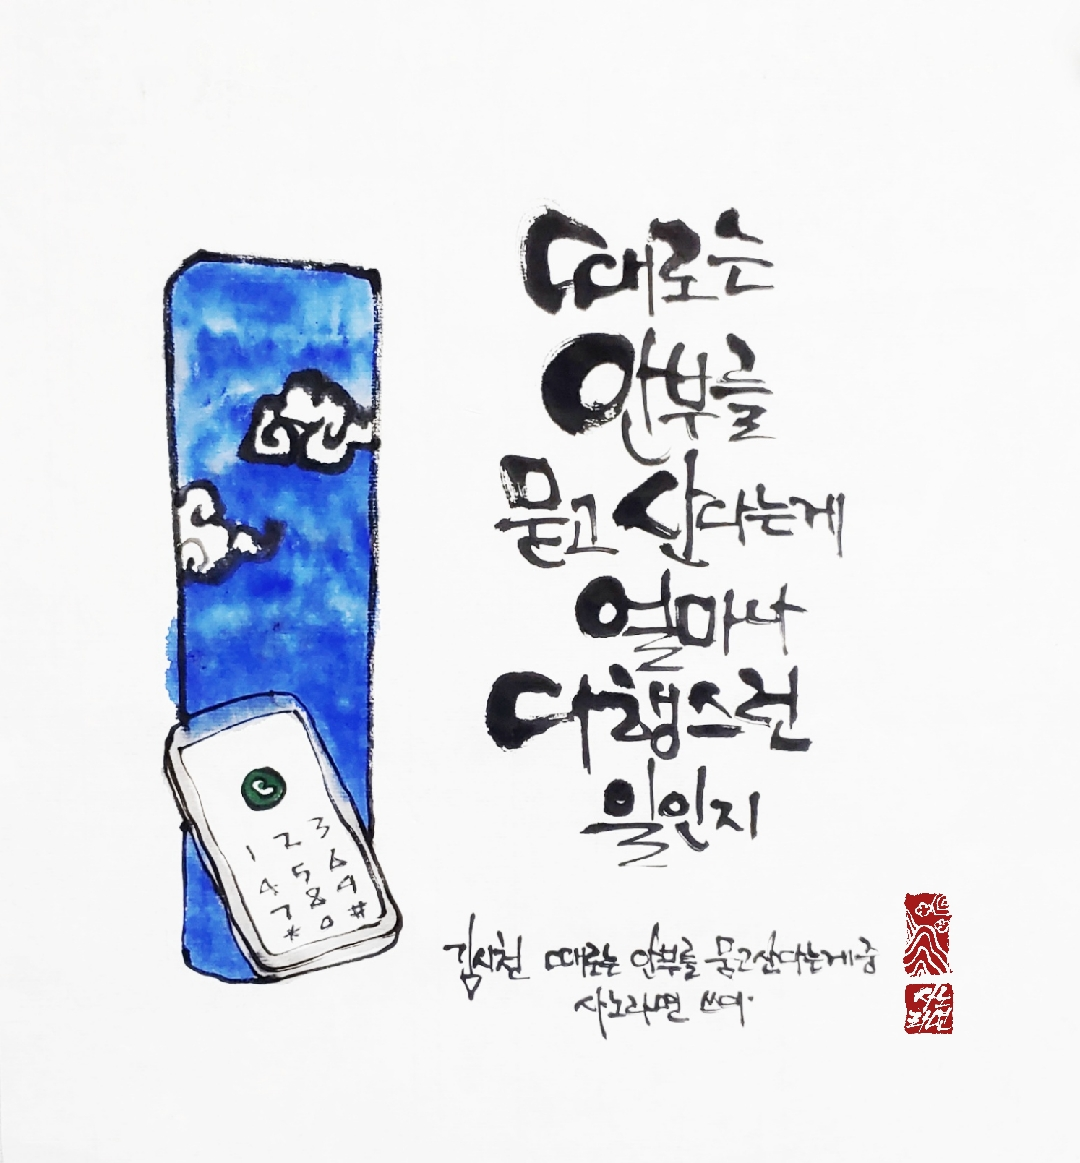 때로는
안부를
묻고 산다는게
얼마나
다행스런
일인지
1 2 3
4 5 6
7 8 9
* 0 #
김시천 때로는 안부를 묻고산다는게 중
사노라면 쓰다.
사노
라면